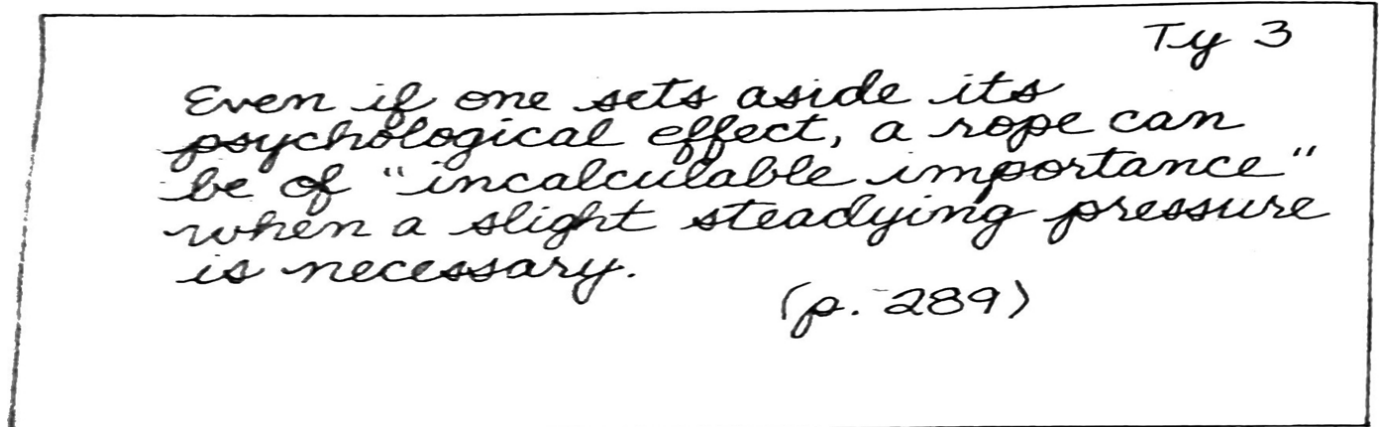 Ty 3
Even if one sets aside its
psychological effect, a rope can
be of "incalculable importance"
when a slight steadying pressure
is necessary.
(p. 289)